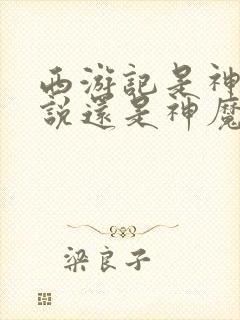 西游記是神
說還是神魔
梁良子